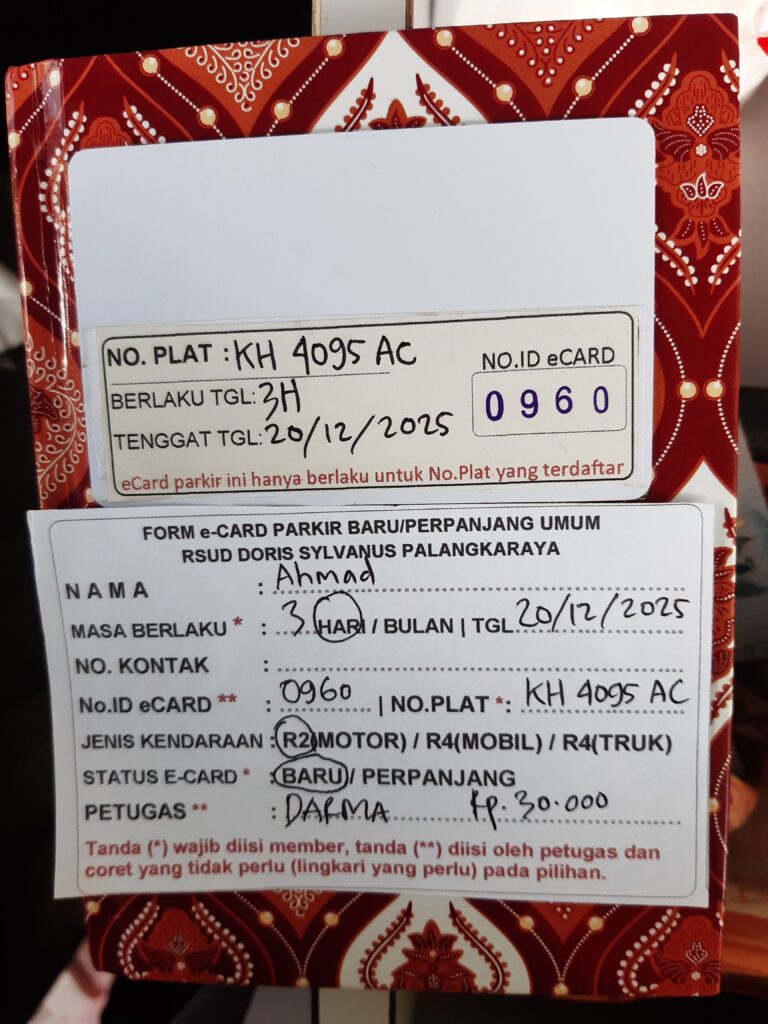 NO. PLAT : KH 4095 AC
NO.ID eCARD
BERLAKU TGL: 3H
0960
TENGGAT TGL: 20/12/2025
eCard parkir ini hanya berlaku untuk No.Plat yang terdaftar
FORM e-CARD PARKIR BARU/PERPANJANG UMUM
RSUD DORIS SYLVANUS PALANGKARAYA
NAMA : Ahmad
MASA BERLAKU * : 3 HARI / BULAN | TGL 20/12/2025
NO. KONTAK :
No.ID eCARD ** : 0960 | NO.PLAT *: KH 4095 AC
JENIS KENDARAAN : R2(MOTOR) / R4(MOBIL) / R4(TRUK)
STATUS E-CARD * : BARU / PERPANJANG
PETUGAS ** : DARMA Rp. 30.000
Tanda (*) wajib diisi member, tanda (**) diisi oleh petugas dan
coret yang tidak perlu (lingkari yang perlu) pada pilihan.